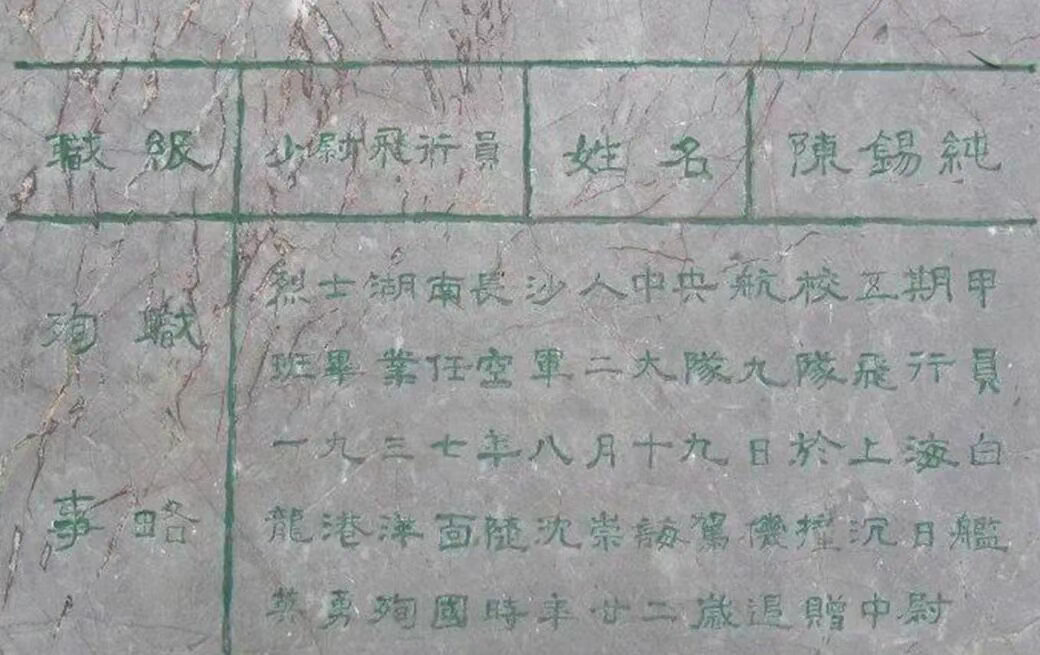 職級 少尉飛行員 姓名 陳錫純
殉職事略
烈士湖南長沙人中央航校五期甲
班畢業任空軍二大隊九隊飛行員
一九三七年八月十九日於上海白
龍港洋面陸沈崇誨駕機撞沉日艦
英勇殉國時年廿二歲追贈中尉